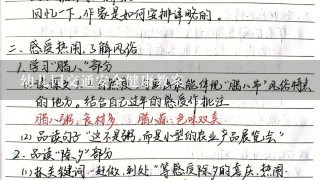 回忆一下,作家是如何安排详略的。
二、感受热闹,了解风俗
1.学习"腊八"部分
能体现"腊八节"风俗特点
的地方。结合自己过年的感受作批注
腊八粥:食材多 腊八蒜:色味双美
(2)品读句子"这不是粥,而是小型的农业产品展览会"
2.品读"除夕"部分
(1)抓关键词"赶做、到处"等感受除夕的喜庆、热闹
幼儿园交通安全健康教案